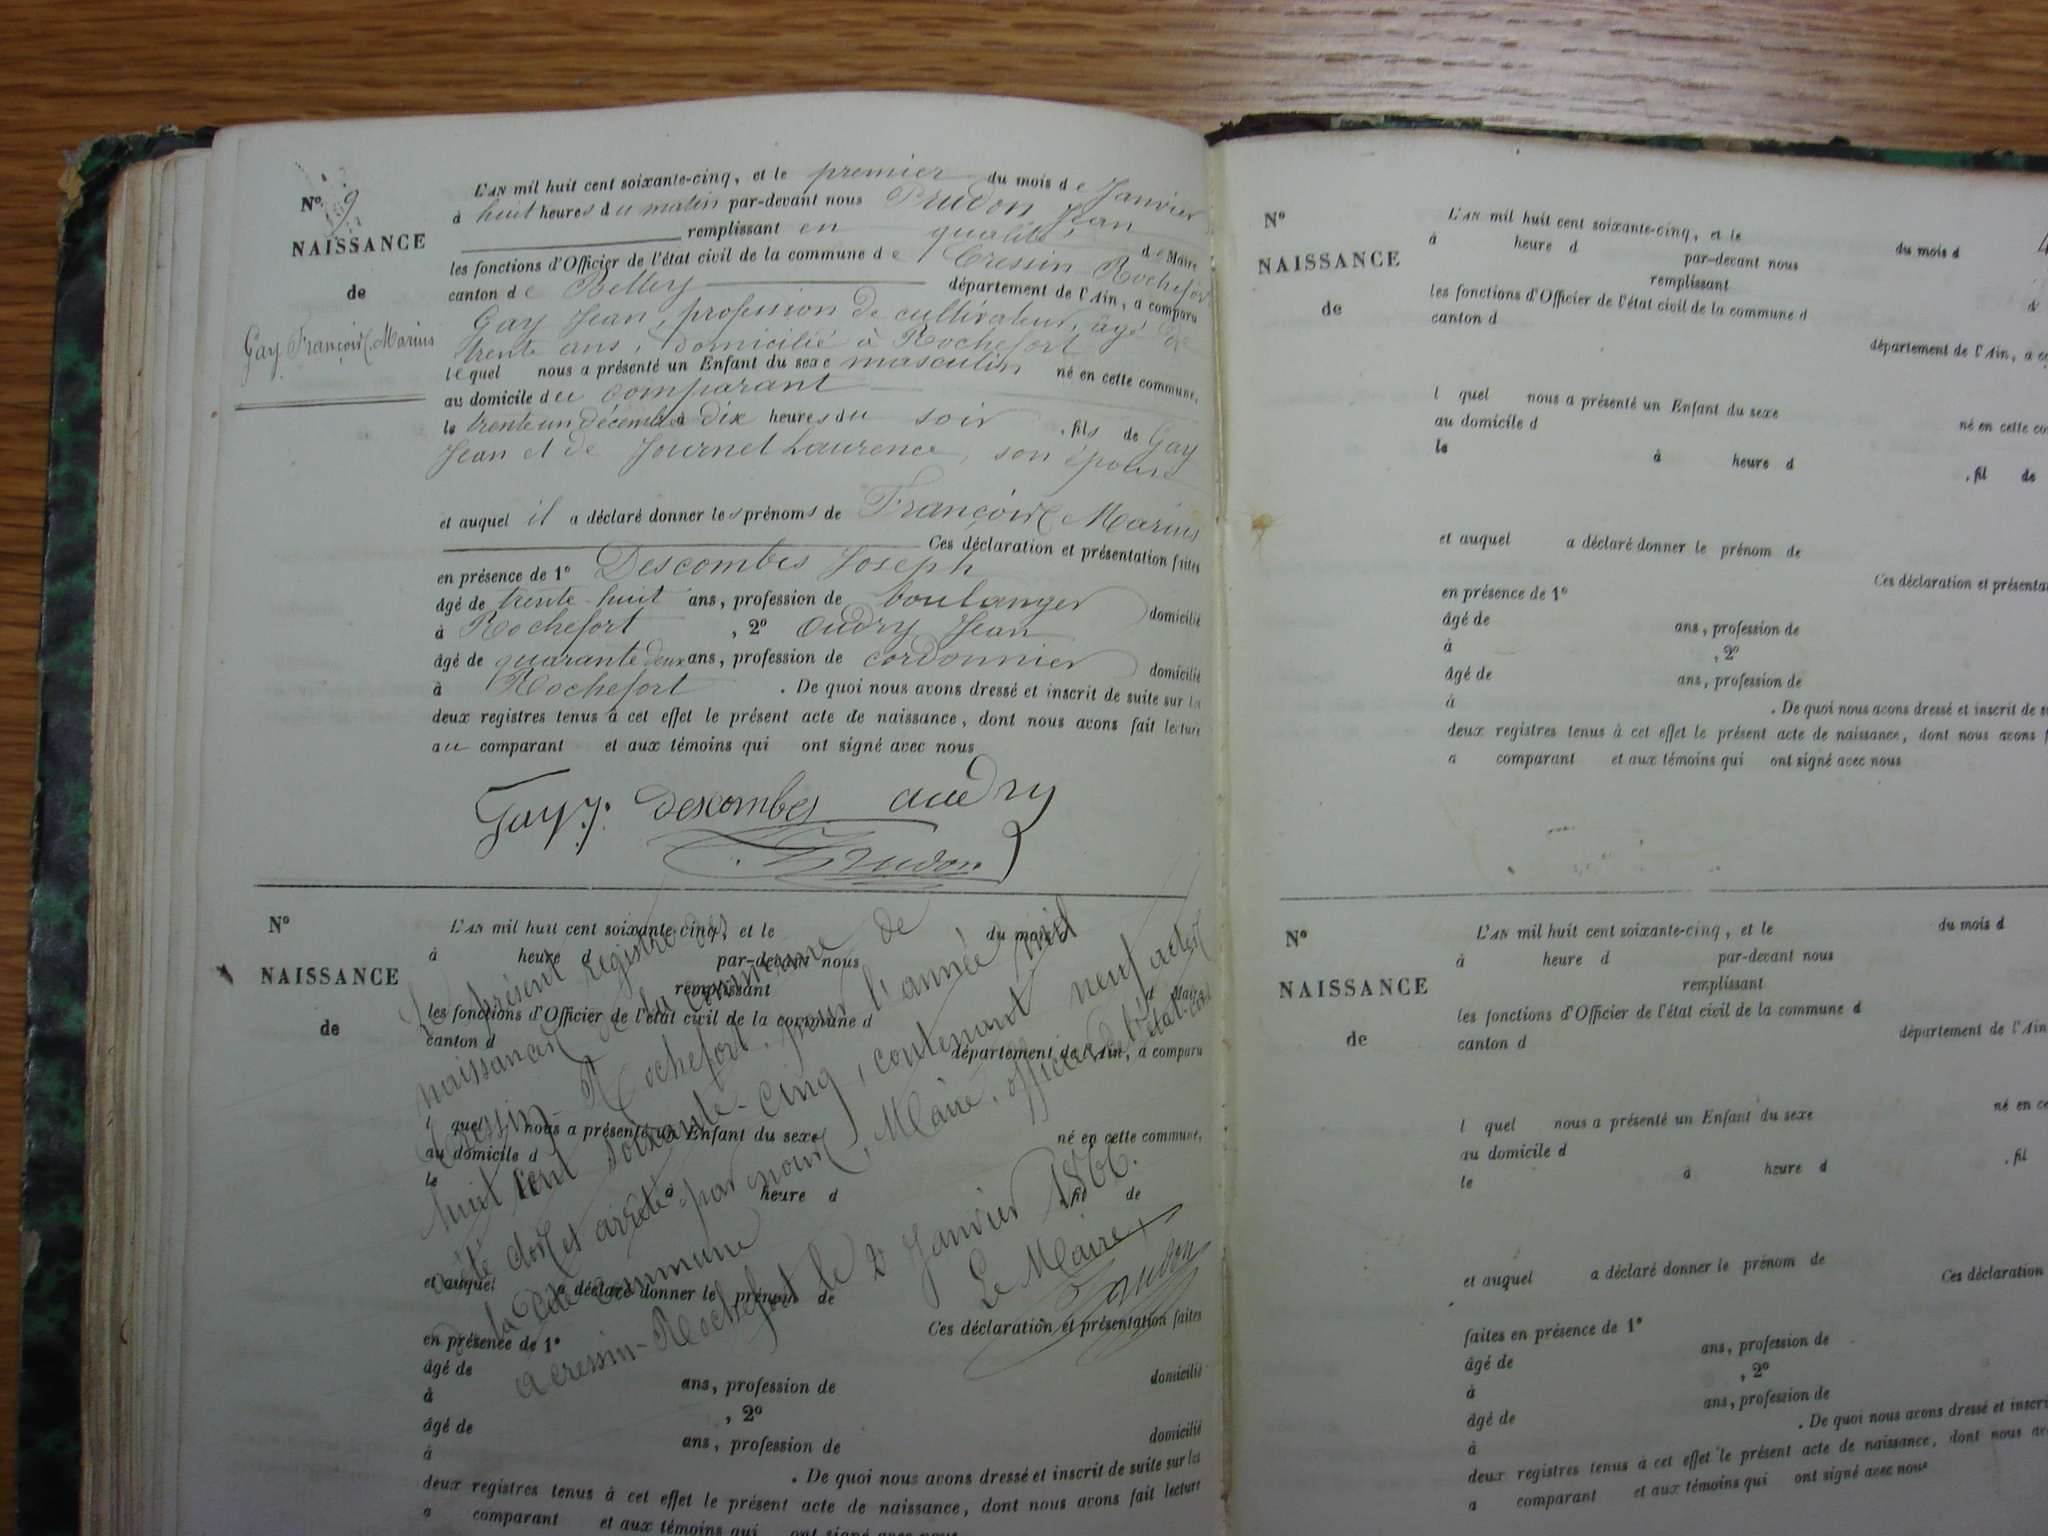 N° 9
NAISSANCE
de
Gay François Marius
L'AN mil huit cent soixante-cinq, et le premier du mois de Janvier
à huit heures du matin par-devant nous Prudon Jean
remplissant en qualité de Maire
les fonctions d'Officier de l'état civil de la commune de Cressin-Rochefort
canton de Belley département de l'Ain, a comparu
Gay Jean, profession de cultivateur, âgé de
trente ans, domicilié à Rochefort
lequel nous a présenté un Enfant du sexe masculin né en cette commune,
au domicile du comparant
le trente un décembre à dix heures du soir, fils de Gay
Jean et de Journet Laurence, son épouse
et auquel il a déclaré donner les prénoms de François Marius
Ces déclaration et présentation faites
en présence de 1° Descombes Joseph
âgé de trente-huit ans, profession de boulanger domicilié
à Rochefort, 2° Audry Jean
âgé de quarante deux ans, profession de cordonnier domicilié
à Rochefort. De quoi nous avons dressé et inscrit de suite sur les
deux registres tenus à cet effet le présent acte de naissance, dont nous avons fait lecture
au comparant et aux témoins qui ont signé avec nous
Gay J. Descombes Audry
Prudon
N°
NAISSANCE
de
L'AN mil huit cent soixante-cinq, et le du mois d
à heure d par-devant nous
remplissant
d Maire
les fonctions d'Officier de l'état civil de la commune d
canton d département de l'Ain, a comparu
l quel nous a présenté un Enfant du sexe né en cette commune,
au domicile d
le à heure d , fil de
et auquel a déclaré donner le prénom de
Ces déclaration et présentation faites
en présence de 1°
âgé de ans, profession de domicilié
à , 2°
âgé de ans, profession de domicilié
à . De quoi nous avons dressé et inscrit de suite sur les
deux registres tenus à cet effet le présent acte de naissance, dont nous avons fait lecture
a comparant et aux témoins qui ont signé avec nous
Le présent registre des
naissances de la commune de
Cressin-Rochefort, pour l'année mil
huit cent soixante-cinq, contenant neuf actes
a été clos et arrêté par nous, Maire, officier de l'état-civil
de la dite commune
à Cressin-Rochefort le 2 Janvier 1866.
Le Maire
Prudon
N°
NAISSANCE
de
L'AN mil huit cent soixante-cinq, et le du mois d
4
à heure d par-devant nous
remplissant
d
les fonctions d'Officier de l'état civil de la commune d
canton d département de l'Ain, a co
l quel nous a présenté un Enfant du sexe né en cette co
au domicile d
le à heure d , fil de
et auquel a déclaré donner le prénom de
Ces déclaration et présenta
en présence de 1°
âgé de ans, profession de
à , 2°
âgé de ans, profession de
à . De quoi nous avons dressé et inscrit de s
deux registres tenus à cet effet le présent acte de naissance, dont nous avons f
a comparant et aux témoins qui ont signé avec nous
N°
NAISSANCE
de
L'AN mil huit cent soixante-cinq, et le du mois d
à heure d par-devant nous
remplissant
les fonctions d'Officier de l'état civil de la commune d
canton d département de l'Ain
l quel nous a présenté un Enfant du sexe né en ce
au domicile d
le à heure d , fil
et auquel a déclaré donner le prénom de
Ces déclaration
faites en présence de 1°
âgé de ans, profession de
à , 2°
âgé de ans, profession de
à . De quoi nous avons dressé et inscri
deux registres tenus à cet effet le présent acte de naissance, dont nous av
a comparant et aux témoins qui ont signé avec nous